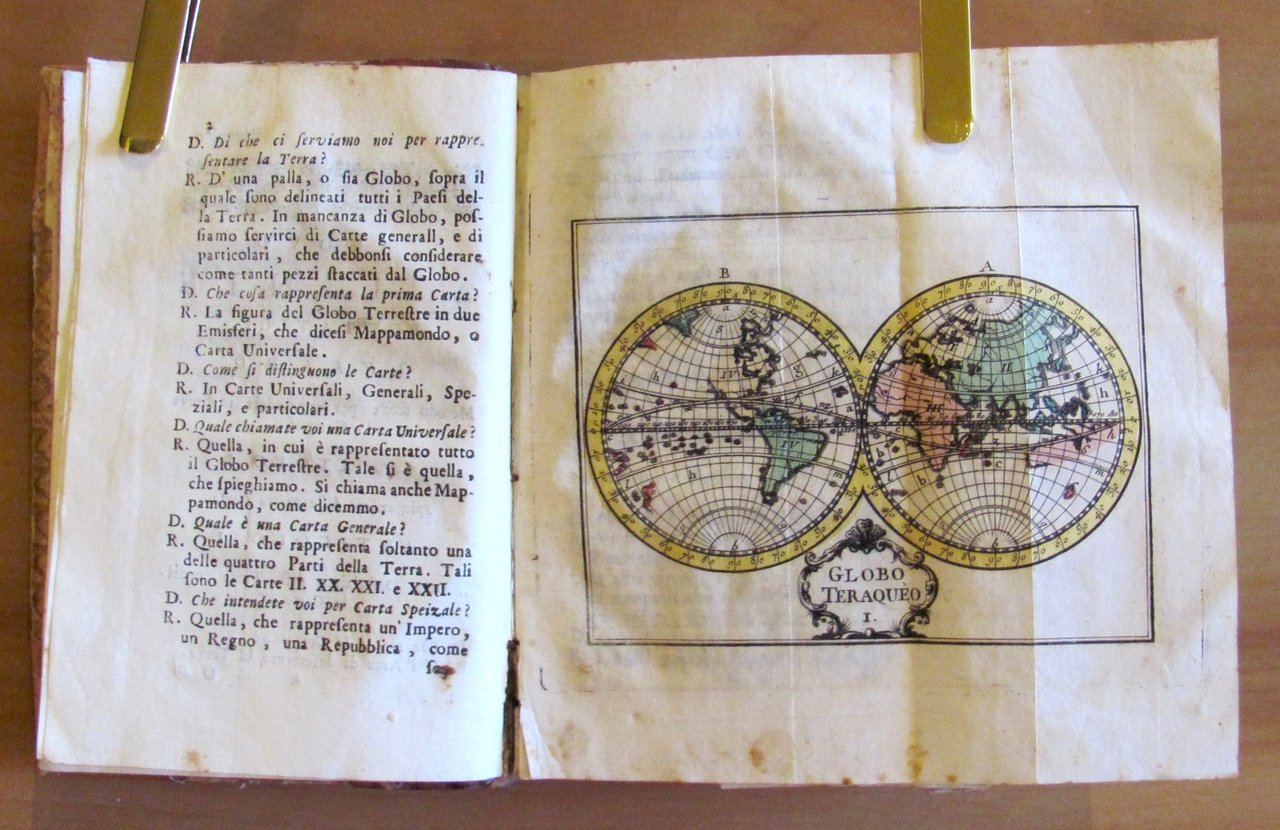 2
D. Di che ci ſerviamo noi per rappre-
ſentare la Terra?
R. D' una palla, o ſia Globo, ſopra il
quale ſono delineati tutti i Paeſi del-
la Terra. In mancanza di Globo, poſ-
ſiamo ſervirci di Carte generall, e di
particolari, che debbonſi conſiderare
come tanti pezzi ſtaccati dal Globo.
D. Che coſa rappreſenta la prima Carta?
R. La figura del Globo Terreſtre in due
Emisferi, che diceſi Mappamondo, o
Carta Univerſale.
D. Come ſi diſtinguono le Carte?
R. In Carte Univerſali, Generali, Spe-
ziali, e particolari.
D. Quale chiamate voi una Carta Univerſale?
R. Quella, in cui è rappreſentato tutto
il Globo Terreſtre. Tale ſi è quella,
che ſpieghiamo. Si chiama anche Map-
pamondo, come dicemmo.
D. Quale è una Carta Generale?
R. Quella, che rappreſenta ſoltanto una
delle quattro Parti della Terra. Tali
ſono le Carte II. XX. XXI. e XXII.
D. Che intendete voi per Carta Speizale?
R. Quella, che rappreſenta un' Impero,
un Regno, una Repubblica, come
B
A
GLOBO
TERAQUÈO
I.